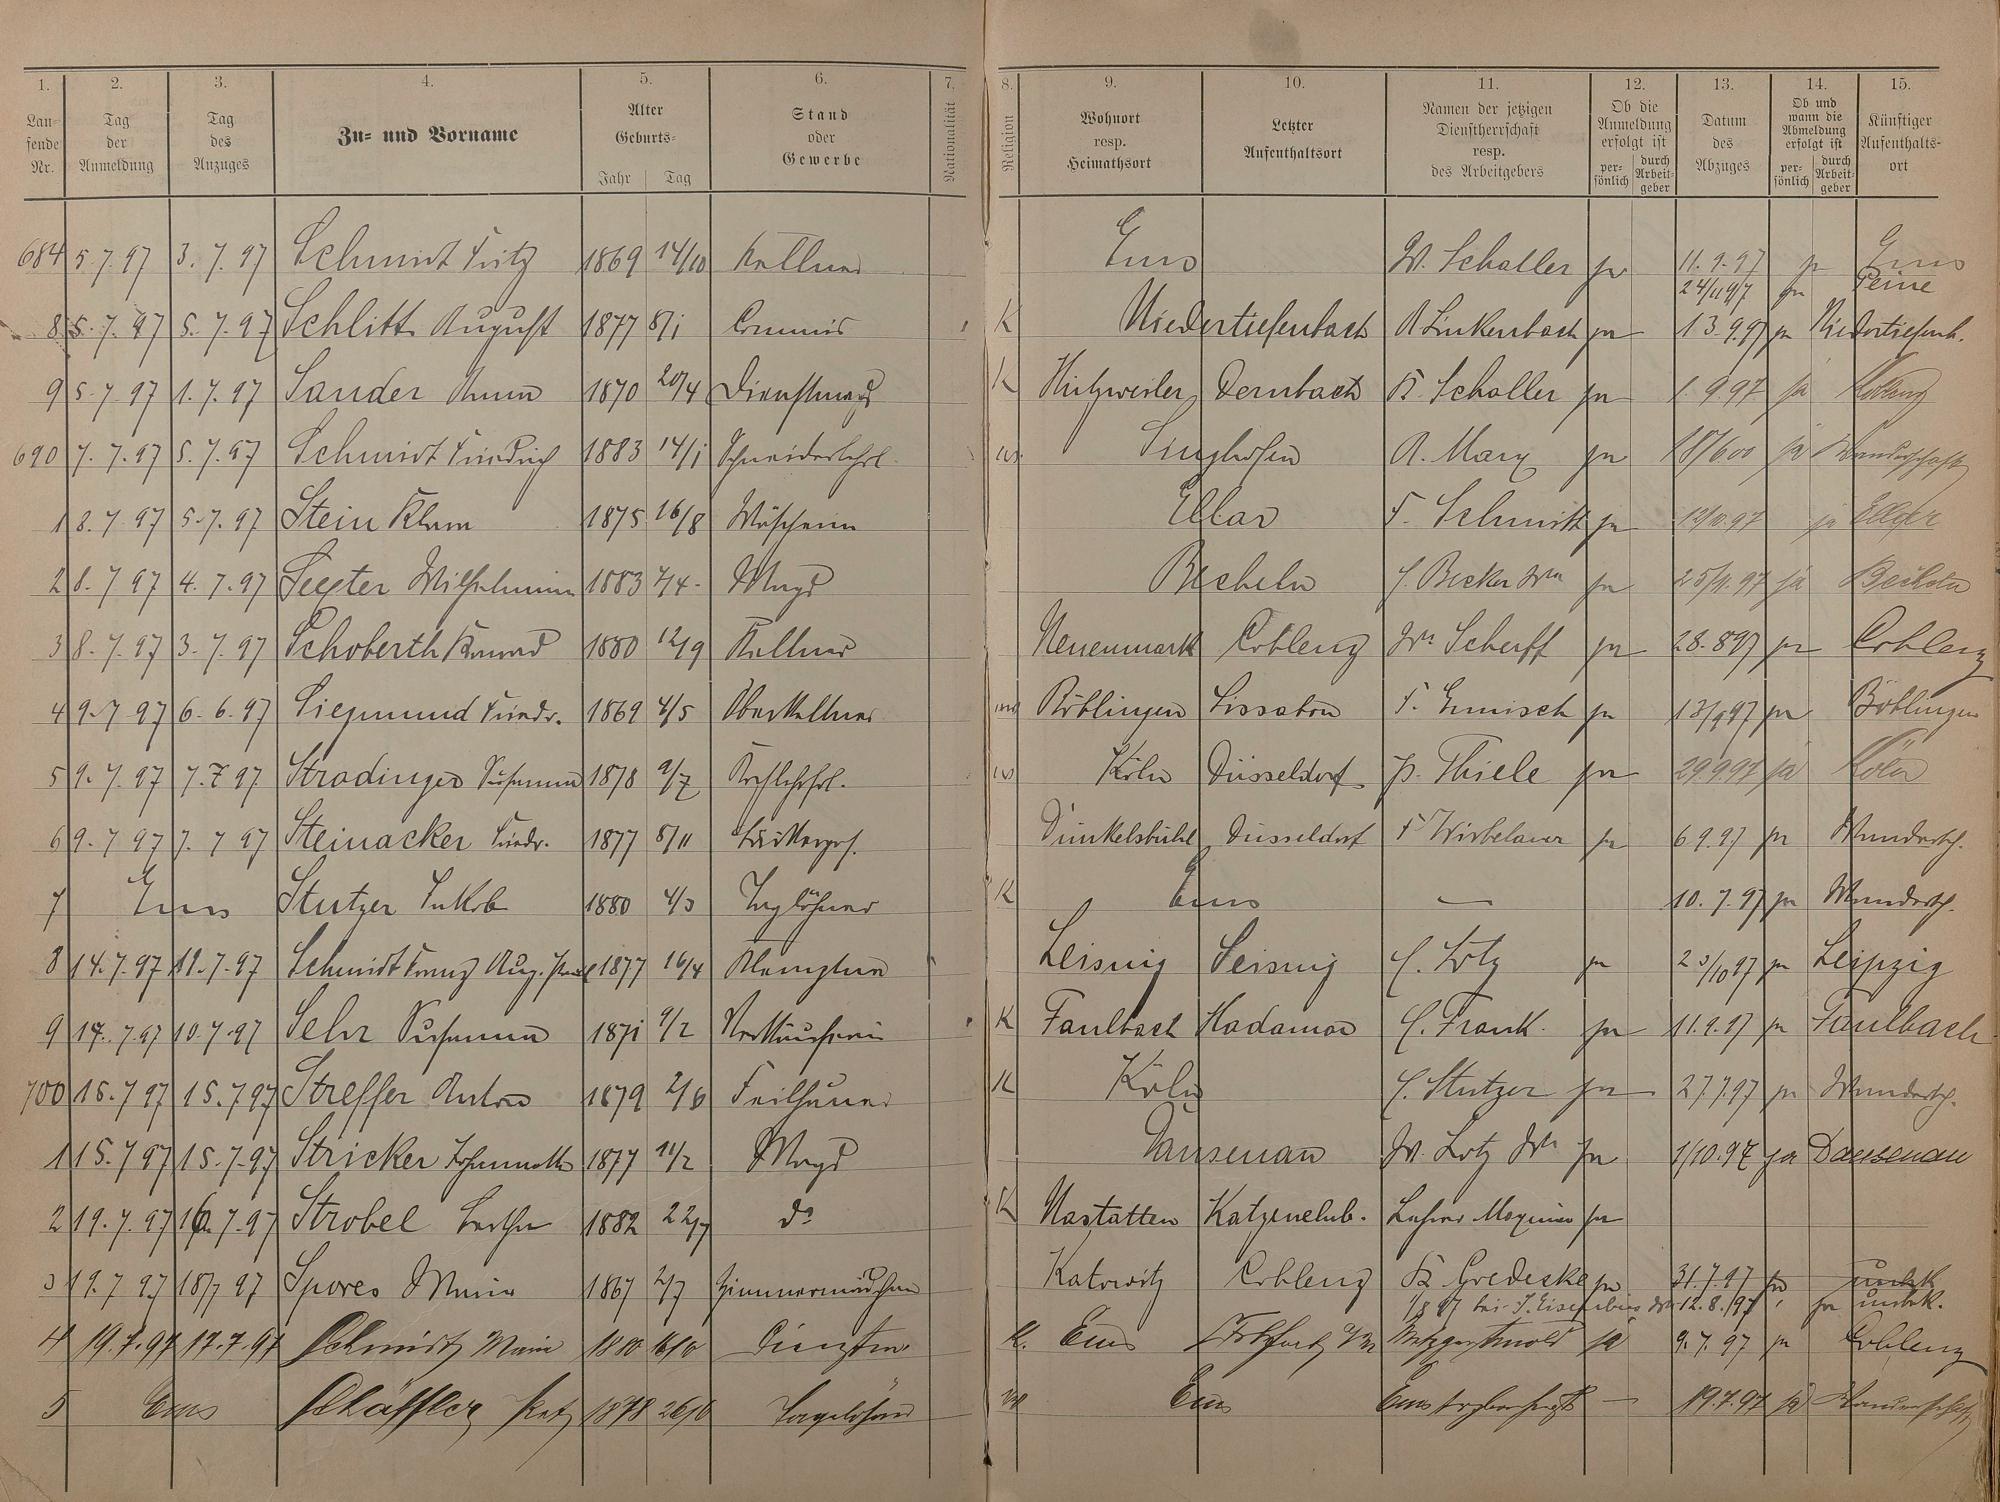 1. 2. 3. 4. 5. 6. 7. 8. 9. 10. 11. 12. 13. 14. 15.
Laufende Nr.
Tag der Anmeldung
Tag des Anzuges
Zu- und Vorname
Alter Geburts-
Jahr Tag
Stand oder Gewerbe
Nationalität
Religion
Wohnort resp. Heimathsort
Letzter Aufenthaltsort
Namen der jetzigen Dienstherrschaft resp. des Arbeitgebers
Ob die Anmeldung erfolgt ist
persönlich durch Arbeitgeber
Datum des Abzuges
Ob und wann die Abmeldung erfolgt ist
persönlich durch Arbeitgeber
Künftiger Aufenthaltsort
684 5.7.97 3.7.97 Schmidt Fritz 1869 14/10 Kellner Ems W. Schaller ja 11.9.97 ja Ems
24/11 97 ja Peine
8 5.7.97 5.7.97 Schlitt August 1877 8/1 Commis K Niedertiefenbach A Linkenbach ja 13.9.97 ja Niedertiefenb.
9 5.7.97 1.7.97 Sander Anna 1870 20/4 Dienstmagd K Dernbach K. Schaller ja 1.9.97 ja Koblenz
690 7.7.97 5.7.97 Schmidt Friedrich 1883 14/1 Schneiderlehrl. Singhofen A. Marx ja 18/6 00 ja Wanderschaft
1 8.7.97 5.7.97 Stein Klara 1875 16/8 Wäscherin Ellar F. Schmitt ja ja
2 8.7.97 4.7.97 Wilhelmine 1883 7/4 Magd Becheln C. Becker Ww ja 25/11.97 ja Becheln
3 8.7.97 3.7.97 Schoberth Konrad 1880 12/9 Kellner Neuenmark Coblenz Ww Scherff ja 28.8 97 ja Coblenz
4 9.7.97 6.6.97 Siegmund Friedr. 1869 4/5 Oberkellner Böblingen Lissabon F. Ermisch ja 13/9 97 ja Böblingen
5 9.7.97 7.7.97 Susanna 1878 9/7 Kochlehrl. Köln Düsseldorf P. Thiele ja 29.9.97 ja Köln
6 9.7.97 7.7.97 Steinacker Friedr. 1877 8/11 Dünkelsbühl Düsseldorf F Wirbelauer ja 6.9.97 ja Wandersch.
7 Ems Stutzer Jakob 1880 4/3 Taglöhner K Ems — 10.7.97 ja Wandersch.
8 14.7.97 11.7.97 Schmidt Franz Aug. 1877 16/4 Klempner Leisnig Leisnig C. Lotz ja 23/10 97 ja Leipzig
9 14.7.97 10.7.97 Sehr Susanna 1871 9/2 Verkäuferin K Faulbach Hadamar C. Frank ja 11.9.97 ja Faulbach
700 15.7.97 15.7.97 Streffer Anton 1879 2/6 Feilhauer K Köln C. Stutzer ja 27.7.97 ja Wandersch.
1 15.7.97 15.7.97 Stricker 1877 Magd Dausenau W. Lotz Ww ja 1/10.97 ja Dausenau
2 19.7.97 16.7.97 Strobel Bertha 1882 22/7 do K Nastätten Katzenelnb. Lehrer ja
3 19.7.97 18/7 97 Spores Maria 1867 2/7 Zimmermädchen Katowitz Coblenz ja 31.7.97 ja unbek
12.8./97 ja unbek.
4 19.7.97 17.7.97 Schmidt Marie 1880 K. Ems Metzger Arnold ja 9.7.97 ja Coblenz
5 Ems 1878 Tagelöhner Ems 19.7.97 ja Wanderschaft